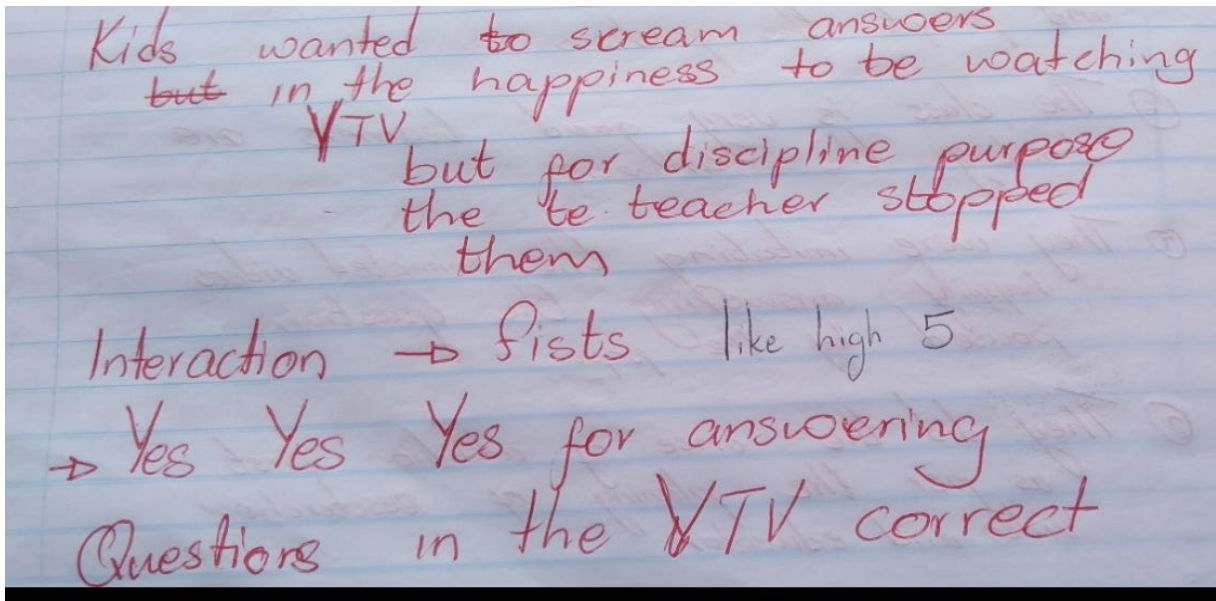 Kids wanted to scream answers
but in the happiness to be watching
YTV
but for discipline purpose
the te. teacher stopped
them
Interaction → fists like high 5
→ Yes Yes Yes for answering
Questions in the YTV correct